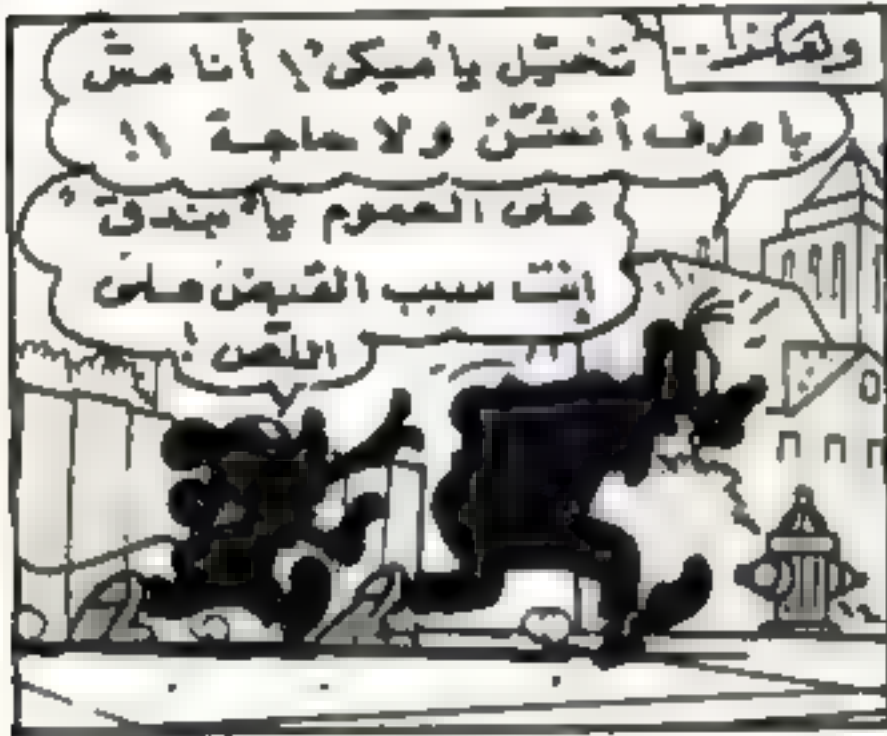 وهكذا..
تخيّل يا ميكي! أنا مش
عارف أنشّن ولا حاجة !!
على العموم يا بندق
إنتا سبب القبض على
اللّص !